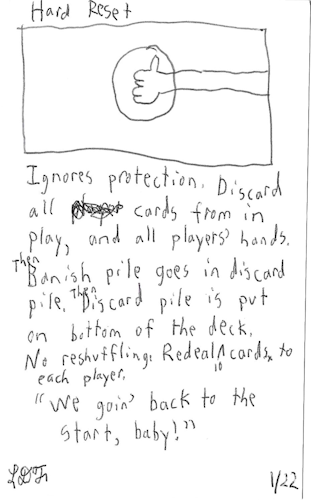 Hard Reset
Ignores protection. Discard
all cards from in
play, and all players' hands.
Then Banish pile goes in discard
pile. Then Discard pile is put
on bottom of the deck.
No reshuffling. Redeal 10 cards to
each player.
"We goin' back to the
start, baby!"
1/22